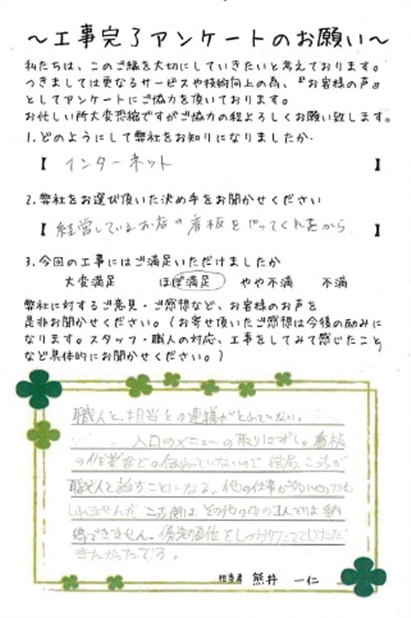 ～工事完了アンケートのお願い～
私たちは、このご縁を大切にしていきたいと考えております。
つきましては更なるサービスや技術向上の為、『お客様の声』
としてアンケートにご協力を頂いております。
お忙しい所大変恐縮ですがご協力の程よろしくお願い致します。
1.どのようにして弊社をお知りになりましたか
【 インターネット 】
2.弊社をお選び頂いた決め手をお聞かせください
【 経営しているお店の看板をやってくれたから 】
3.今回の工事にはご満足いただけましたか
大変満足 ほぼ満足 やや不満 不満
弊社に対するご意見・ご感想など、お客様のお声を
是非お聞かせください。（お寄せ頂いたご感想は今後の励みに
なります。スタッフ・職人の対応、工事をしてみて感じたこと
など具体的にお聞かせください。）
職人と、担当との連携がとれていない。
入口のメニューの取りはずし。看板
の作業などの伝わっていないので結局、こちらが
職人と話すことになる。他の仕事が
しれませんが
得できません。優先順位をしっかりたてていただ
きたかったです。
担当者 熊井 一仁